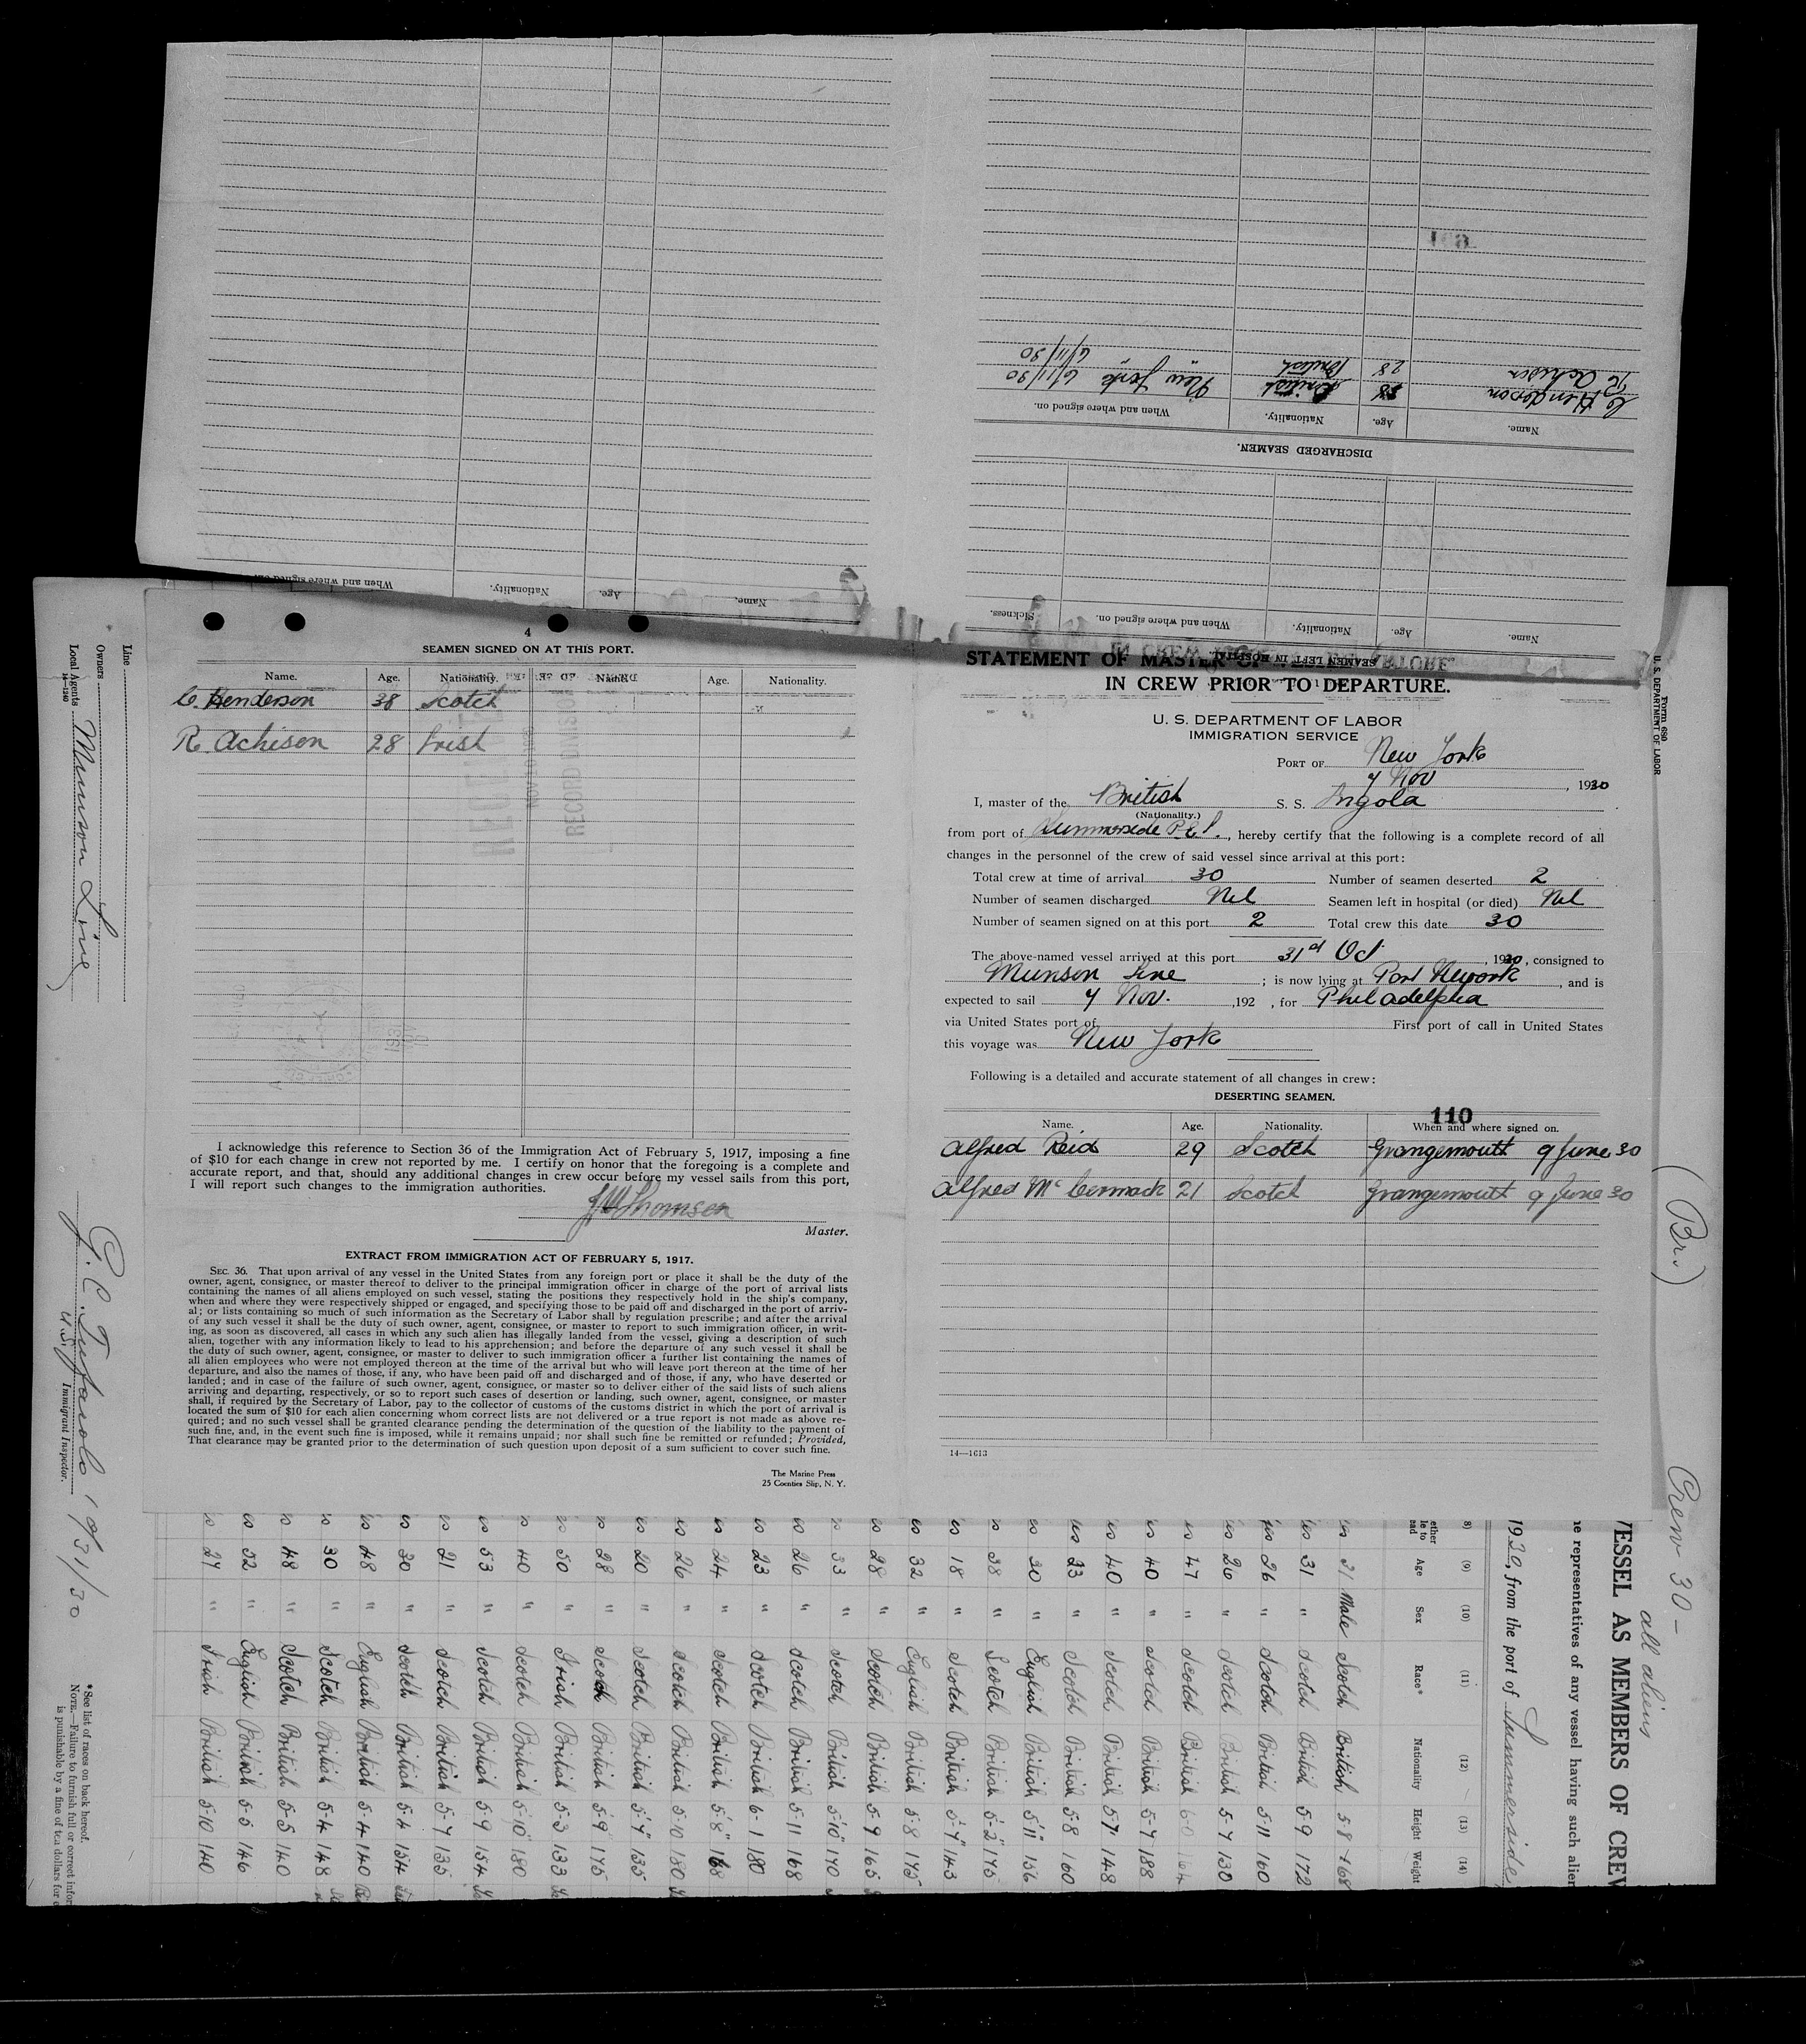 Name.
Age.
Nationality.
When and where signed on.
SEAMEN LEFT IN HOSPITAL.
Name.
Age.
Nationality.
When and where signed on.
Sickness.
DISCHARGED SEAMEN.
Name.
Age.
Nationality.
When and where signed on.
C Henderson 38 British New York 6/11/30
R Acheson 28 British " 6/11/30
4
SEAMEN SIGNED ON AT THIS PORT.
Name. Age. Nationality. Name. Age. Nationality.
C. Henderson 38 Scotch
R. Acheson 28 Irish
I acknowledge this reference to Section 36 of the Immigration Act of February 5, 1917, imposing a fine
of $10 for each change in crew not reported by me. I certify on honor that the foregoing is a complete and
accurate report, and that, should any additional changes in crew occur before my vessel sails from this port,
I will report such changes to the immigration authorities.
J W Thomson
Master.
EXTRACT FROM IMMIGRATION ACT OF FEBRUARY 5, 1917.
SEC. 36. That upon arrival of any vessel in the United States from any foreign port or place it shall be the duty of the
owner, agent, consignee, or master thereof to deliver to the principal immigration officer in charge of the port of arrival lists
containing the names of all aliens employed on such vessel, stating the positions they respectively hold in the ship's company,
when and where they were respectively shipped or engaged, and specifying those to be paid off and discharged in the port of arriv-
al; or lists containing so much of such information as the Secretary of Labor shall by regulation prescribe; and after the arrival
of any such vessel it shall be the duty of such owner, agent, consignee, or master to report to such immigration officer, in writ-
ing, as soon as discovered, all cases in which any such alien has illegally landed from the vessel, giving a description of such
alien, together with any information likely to lead to his apprehension; and before the departure of any such vessel it shall be
the duty of such owner, agent, consignee, or master to deliver to such immigration officer a further list containing the names of
all alien employees who were not employed thereon at the time of the arrival but who will leave port thereon at the time of her
departure, and also the names of those, if any, who have been paid off and discharged and of those, if any, who have deserted or
landed; and in case of the failure of such owner, agent, consignee, or master so to deliver either of the said lists of such aliens
arriving and departing, respectively, or so to report such cases of desertion or landing, such owner, agent, consignee, or master
shall, if required by the Secretary of Labor, pay to the collector of customs of the customs district in which the port of arrival is
located the sum of $10 for each alien concerning whom correct lists are not delivered or a true report is not made as above re-
quired; and no such vessel shall be granted clearance pending the determination of the question of the liability to the payment of
such fine, and, in the event such fine is imposed, while it remains unpaid; nor shall such fine be remitted or refunded; Provided,
That clearance may be granted prior to the determination of such question upon deposit of a sum sufficient to cover such fine.
The Marine Press
25 Coenties Slip, N. Y.
Form 680
U. S. DEPARTMENT OF LABOR
STATEMENT OF MASTER OF
IN CREW PRIOR TO DEPARTURE.
U. S. DEPARTMENT OF LABOR
IMMIGRATION SERVICE
PORT OF New York
7 Nov, 1930
I, master of the British S. S. Angola
(Nationality.)
from port of Summerside P.E.I., hereby certify that the following is a complete record of all
changes in the personnel of the crew of said vessel since arrival at this port:
Total crew at time of arrival 30 Number of seamen deserted 2
Number of seamen discharged Nil Seamen left in hospital (or died) Nil
Number of seamen signed on at this port 2 Total crew this date 30
The above-named vessel arrived at this port 31st Oct, 1930, consigned to
Munson Line; is now lying at Port Newark, and is
expected to sail 7 Nov. ,192 , for Philadelphia
via United States port of First port of call in United States
this voyage was New York
Following is a detailed and accurate statement of all changes in crew:
DESERTING SEAMEN.
110
Name. Age. Nationality. When and where signed on.
Alfred Reid 29 Scotch Grangemouth 9 June 30
Alfred McCormack 21 Scotch Grangemouth 9 June 30
14—1613
Line
Owners
Local Agents Munson Line
14-1240
G. C. Tufarolo 10/31/30
U.S. Immigrant Inspector.
*See list of races on back hereof.
NOTE.—Failure to furnish full or correct infor
is punishable by a fine of ten dollars for e
(Br.)
Crew 30 -
all aliens
VESSEL AS MEMBERS OF CREW
he representatives of any vessel having such alien
1930, from the port of Summerside
(8) (9) (10) (11) (12) (13) (14)
Age Sex Race* Nationality Height Weight
31 Male Scotch British 5-8 168
31 " Scotch British 5-9 172
26 " Scotch British 5-11 160
20 " Scotch British 5-7 130
47 " Scotch British 6-0 164
40 " Scotch British 5-7 138
40 " Scotch British 5-7 148
23 " Scotch British 5-8 160
30 " English British 5-11 156
38 " Scotch British 5-2 175
18 " Scotch British 5-7 143
32 " English British 5-8 175
28 " Scotch British 5-9 165
33 " Scotch British 5-10 170
26 " Scotch British 5-11 168
23 " Scotch British 6-1 180
24 " Scotch British 5-8 168
26 " Scotch British 5-10 180
20 " Scotch British 5-7 135
28 " Scotch British 5-9 175
50 " Irish British 5-3 133
40 " Scotch British 5-10 180
53 " Scotch British 5-9 154
21 " Scotch British 5-7 135
30 " Scotch British 5-4 154
48 " English British 5-4 140
30 " Scotch British 5-4 148
48 " Scotch British 5-5 140
52 " English British 5-5 146
27 " Irish British 5-10 140